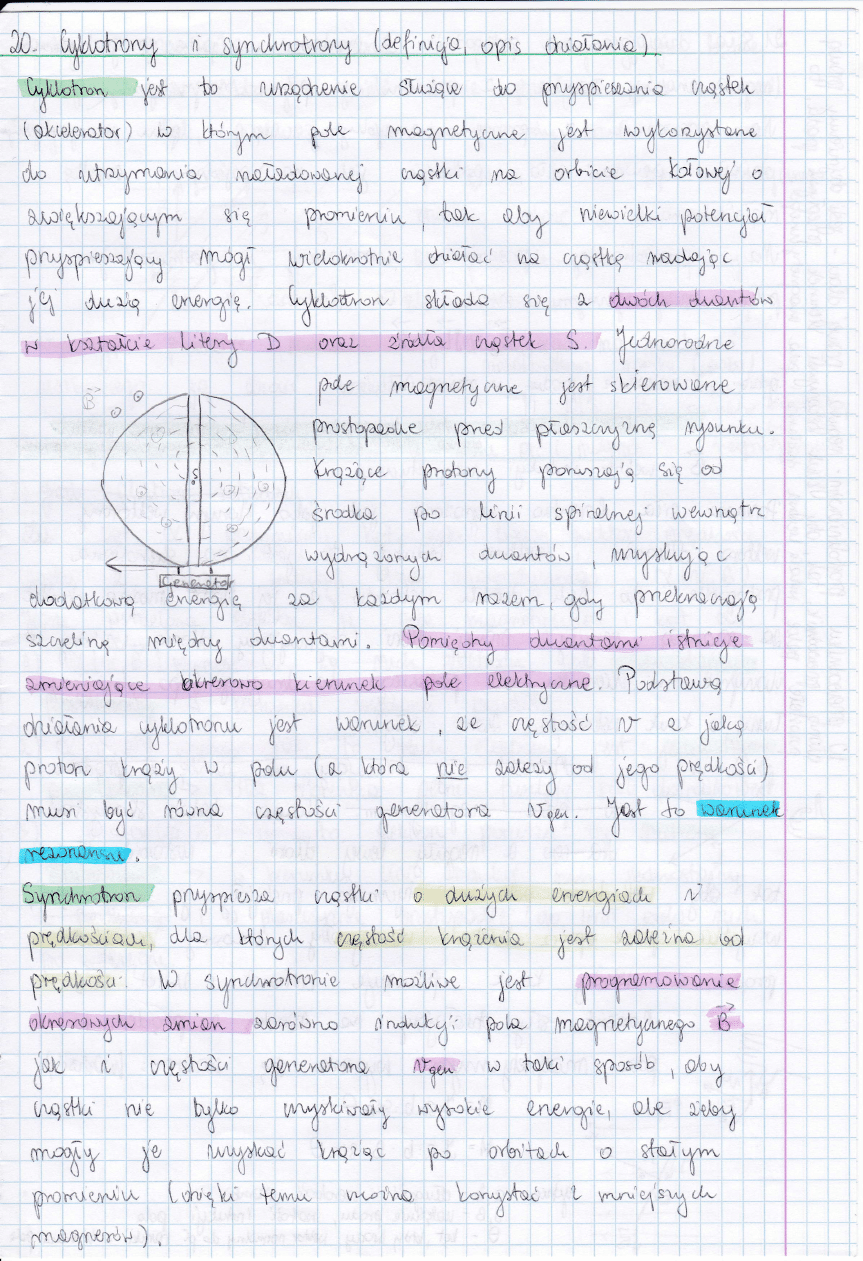 20. Cyklotrony i synchrotrony (definicja, opis działania)
Cyklotron jest to urządzenie służące do przyspieszania cząstek
(akcelerator) w którym pole magnetyczne jest wykorzystane
do utrzymania naładowanej cząstki na orbicie kołowej o
zwiększającym się promieniu, tak aby niewielki potencjał
przyspieszający mógł wielokrotnie działać na cząstkę nadając
jej dużą energię. Cyklotron składa się z dwóch duantów
w kształcie litery D oraz źródła cząstek S. Jednorodne
pole magnetyczne jest skierowane
prostopadle przed płaszczyznę rysunku.
Krążące protony poruszają się od
środka po linii spiralnej wewnątrz
wydrążonych duantów, uzyskując
B
S
Generator
dodatkową energię za każdym razem, gdy przekraczają
szczelinę między duantami. Pomiędzy duantami istnieje
zmieniające okresowo kierunek pole elektryczne. Podstawą
działania cyklotronu jest warunek, że częstość ν z jaką
proton krąży w polu (a która nie zależy od jego prędkości)
musi być równa częstości generatora νgen. Jest to warunek
rezonansu.
Synchrotron przyspiesza cząstki o dużych energiach i
prędkościach, dla których częstość krążenia jest zależna od
prędkości. W synchrotronie możliwe jest programowanie
okresowych zmian zarówno indukcji pola magnetycznego B
jak i częstości generatora νgen w taki sposób, aby
cząstki nie tylko uzyskiwały wysokie energie, ale żeby
mogły je uzyskać krążąc po orbitach o stałym
promieniu (dzięki temu można korzystać z mniejszych
magnesów).